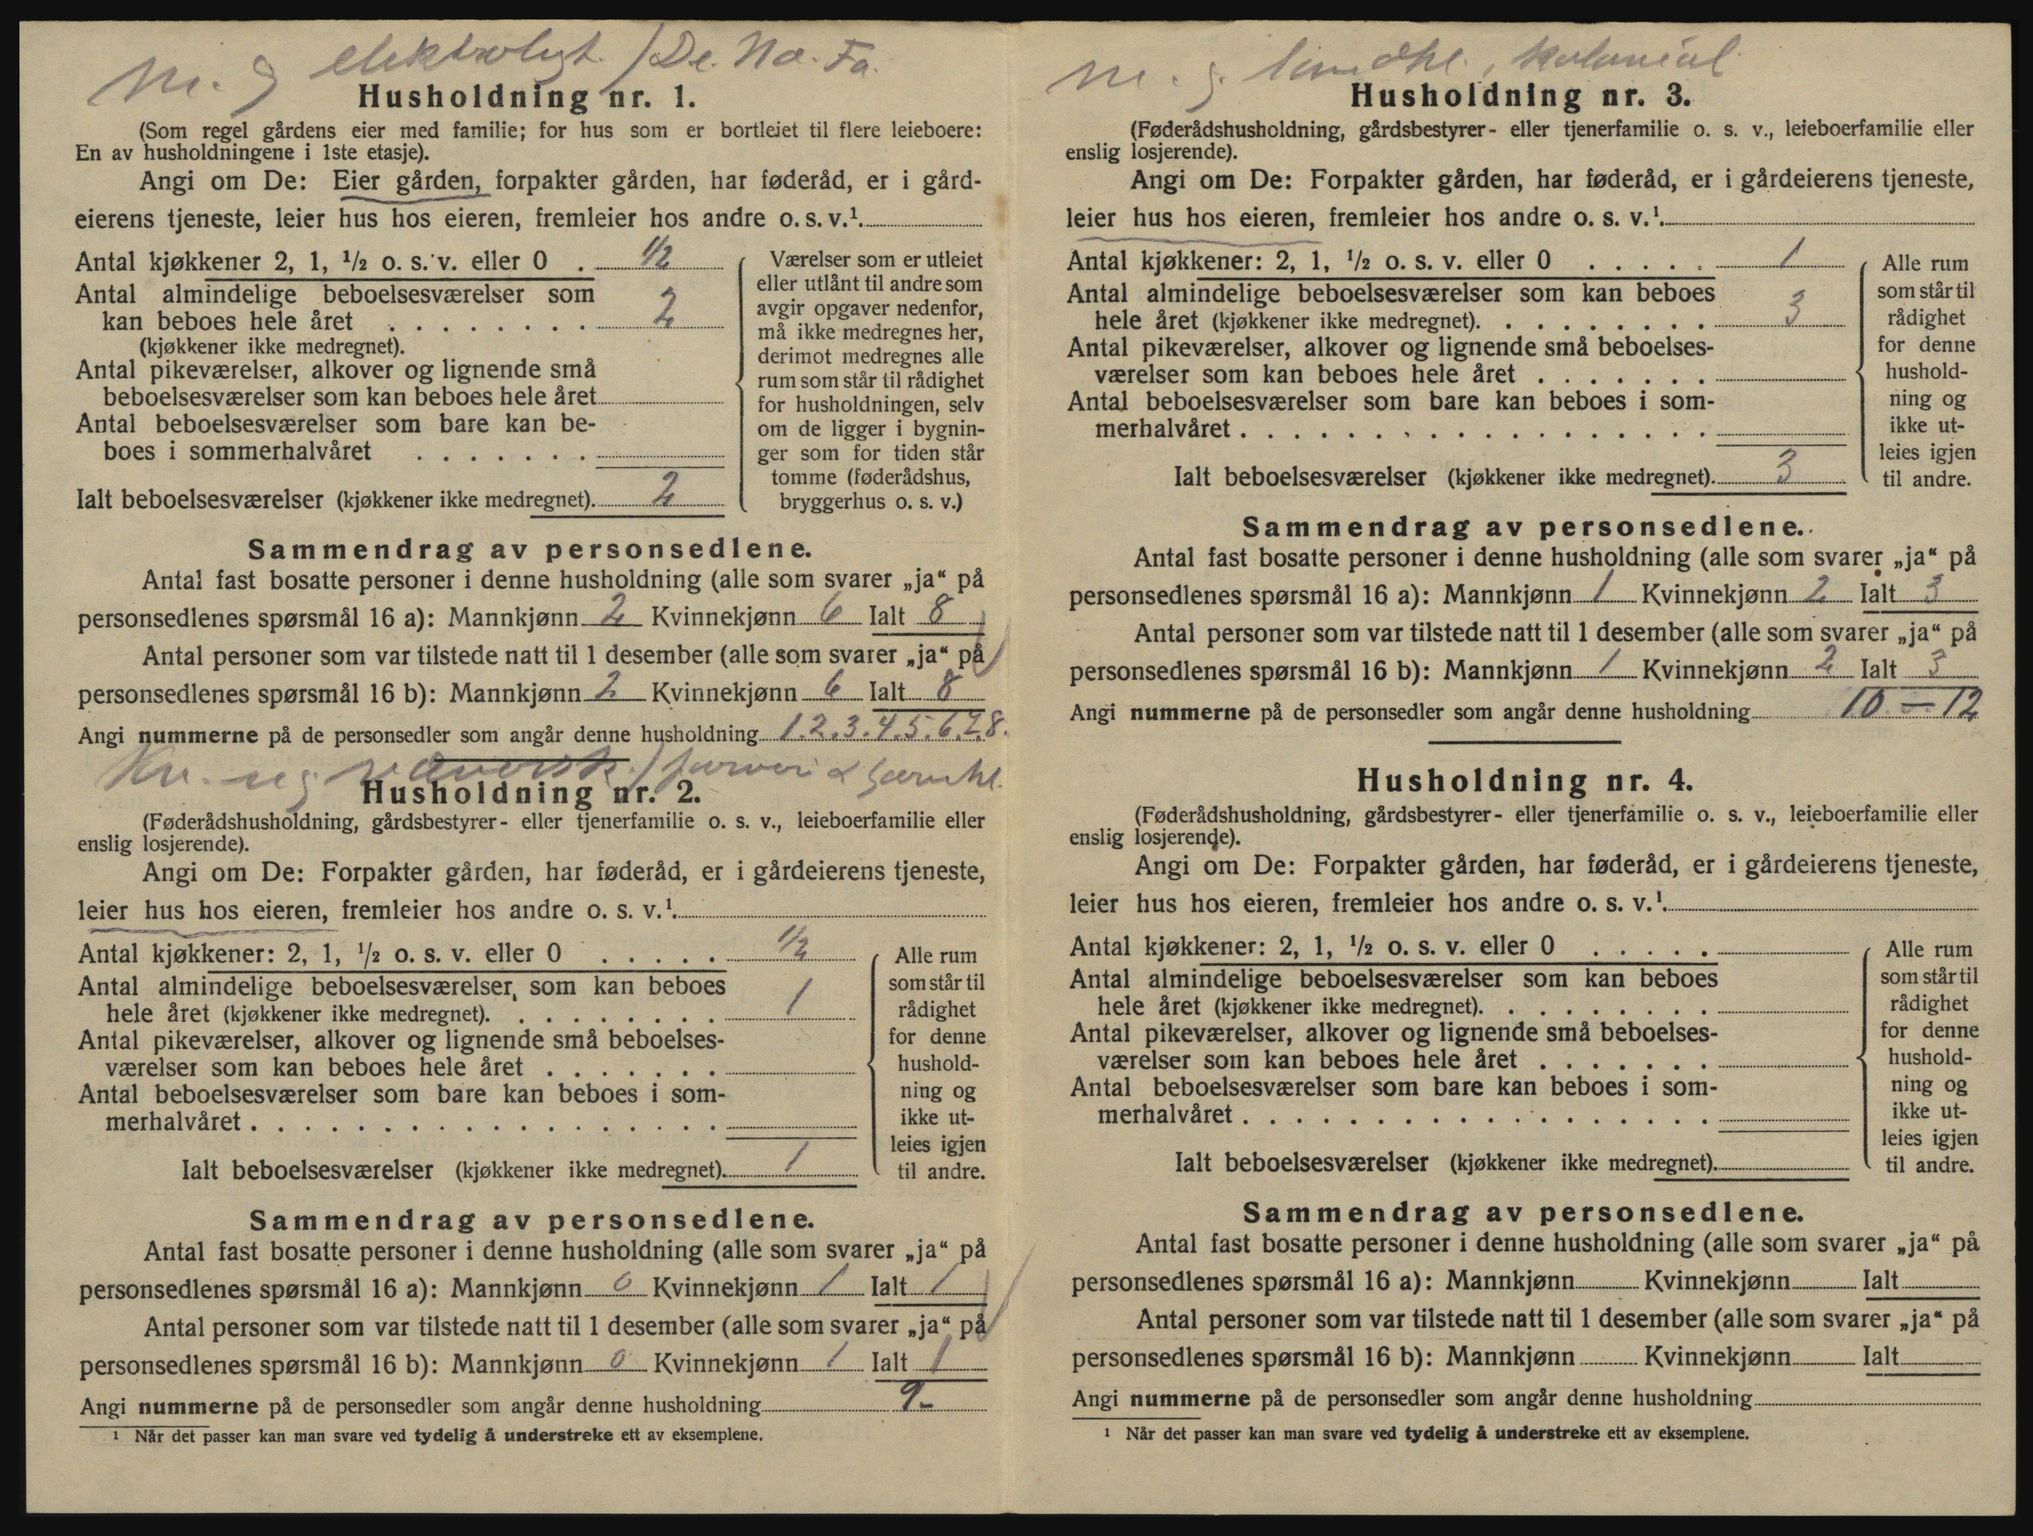 M. g elektrolyt. / De. No. Fa.
Husholdning nr. 1.
(Som regel gårdens eier med familie; for hus som er bortleiet til flere leieboere:
En av husholdningene i 1ste etasje).
Angi om De: Eier gården, forpakter gården, har føderåd, er i gård-
eierens tjeneste, leier hus hos eieren, fremleier hos andre o. s. v.¹
Antal kjøkkener 2, 1, ½ o. s. v. eller 0 . ½
Antal almindelige beboelsesværelser som
kan beboes hele året . . . . . . . . 2
(kjøkkener ikke medregnet).
Antal pikeværelser, alkover og lignende små
beboelsesværelser som kan beboes hele året
Antal beboelsesværelser som bare kan be-
boes i sommerhalvåret . . . . . . .
Ialt beboelsesværelser (kjøkkener ikke medregnet). 2
Værelser som er utleiet
eller utlånt til andre som
avgir opgaver nedenfor,
må ikke medregnes her,
derimot medregnes alle
rum som står til rådighet
for husholdningen, selv
om de ligger i bygnin-
ger som for tiden står
tomme (føderådshus,
bryggerhus o. s. v.)
Sammendrag av personsedlene.
Antal fast bosatte personer i denne husholdning (alle som svarer „ja“ på
personsedlenes spørsmål 16 a): Mannkjønn 2 Kvinnekjønn 6 Ialt 8
Antal personer som var tilstede natt til 1 desember (alle som svarer „ja“ på
personsedlenes spørsmål 16 b): Mannkjønn 2 Kvinnekjønn 6 Ialt 8
Angi nummerne på de personsedler som angår denne husholdning 1.2.3.4.5.6.7.8.
Husholdning nr. 2.
(Føderådshusholdning, gårdsbestyrer- eller tjenerfamilie o. s. v., leieboerfamilie eller
enslig losjerende).
Angi om De: Forpakter gården, har føderåd, er i gårdeierens tjeneste,
leier hus hos eieren, fremleier hos andre o. s. v.¹.
Antal kjøkkener: 2, 1, ½ o. s. v. eller 0 . . . . . ½
Antal almindelige beboelsesværelser som kan beboes
hele året (kjøkkener ikke medregnet). . . . . . . . . 1
Antal pikeværelser, alkover og lignende små beboelses-
værelser som kan beboes hele året . . . . . . .
Antal beboelsesværelser som bare kan beboes i som-
merhalvåret . . . . . . . . . . . . . . . . . .
Ialt beboelsesværelser (kjøkkener ikke medregnet). 1
Alle rum
som står til
rådighet
for denne
hushold-
ning og
ikke ut-
leies igjen
til andre.
Sammendrag av personsedlene.
Antal fast bosatte personer i denne husholdning (alle som svarer „ja“ på
personsedlenes spørsmål 16 a): Mannkjønn 0 Kvinnekjønn 1 Ialt 1
Antal personer som var tilstede natt til 1 desember (alle som svarer „ja“ på
personsedlenes spørsmål 16 b): Mannkjønn 0 Kvinnekjønn 1 Ialt 1
Angi nummerne på de personsedler som angår denne husholdning 9-
¹ Når det passer kan man svare ved tydelig å understreke ett av eksemplene.
M. g. kolonial
Husholdning nr. 3.
(Føderådshusholdning, gårdsbestyrer- eller tjenerfamilie o. s. v., leieboerfamilie eller
enslig losjerende).
Angi om De: Forpakter gården, har føderåd, er i gårdeierens tjeneste,
leier hus hos eieren, fremleier hos andre o. s. v.¹.
Antal kjøkkener: 2, 1, ½ o. s. v. eller 0 . . . . . 1
Antal almindelige beboelsesværelser som kan beboes
hele året (kjøkkener ikke medregnet). . . . . . . . . 3
Antal pikeværelser, alkover og lignende små beboelses-
værelser som kan beboes hele året . . . . . . .
Antal beboelsesværelser som bare kan beboes i som-
merhalvåret . . . . . . . . . . . . . . . . . .
Ialt beboelsesværelser (kjøkkener ikke medregnet). 3
Alle rum
som står til
rådighet
for denne
hushold-
ning og
ikke ut-
leies igjen
til andre.
Sammendrag av personsedlene.
Antal fast bosatte personer i denne husholdning (alle som svarer „ja“ på
personsedlenes spørsmål 16 a): Mannkjønn 1 Kvinnekjønn 2 Ialt 3
Antal personer som var tilstede natt til 1 desember (alle som svarer „ja“ på
personsedlenes spørsmål 16 b): Mannkjønn 1 Kvinnekjønn 2 Ialt 3
Angi nummerne på de personsedler som angår denne husholdning 10 - 12
Husholdning nr. 4.
(Føderådshusholdning, gårdsbestyrer- eller tjenerfamilie o. s. v., leieboerfamilie eller
enslig losjerende).
Angi om De: Forpakter gården, har føderåd, er i gårdeierens tjeneste,
leier hus hos eieren, fremleier hos andre o. s. v.¹.
Antal kjøkkener: 2, 1, ½ o. s. v. eller 0 . . . . .
Antal almindelige beboelsesværelser som kan beboes
hele året (kjøkkener ikke medregnet). . . . . . . . .
Antal pikeværelser, alkover og lignende små beboelses-
værelser som kan beboes hele året . . . . . . .
Antal beboelsesværelser som bare kan beboes i som-
merhalvåret . . . . . . . . . . . . . . . . . .
Ialt beboelsesværelser (kjøkkener ikke medregnet).
Alle rum
som står til
rådighet
for denne
hushold-
ning og
ikke ut-
leies igjen
til andre.
Sammendrag av personsedlene.
Antal fast bosatte personer i denne husholdning (alle som svarer „ja“ på
personsedlenes spørsmål 16 a): Mannkjønn Kvinnekjønn Ialt
Antal personer som var tilstede natt til 1 desember (alle som svarer „ja“ på
personsedlenes spørsmål 16 b): Mannkjønn Kvinnekjønn Ialt
Angi nummerne på de personsedler som angår denne husholdning
¹ Når det passer kan man svare ved tydelig å understreke ett av eksemplene.